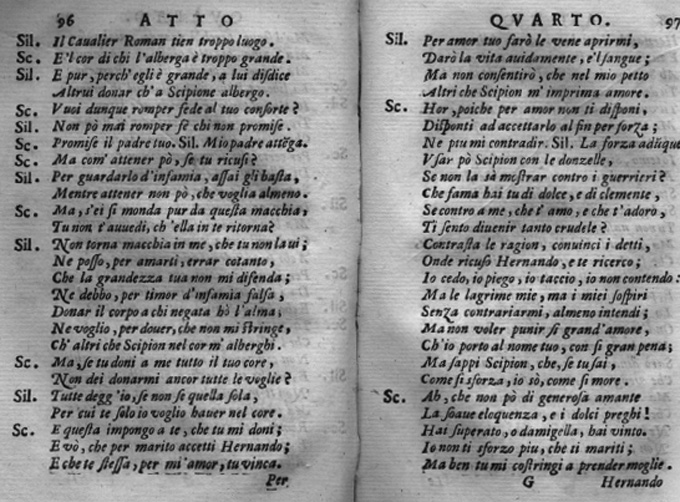 96 ATTO
Sil. Il Caualier Roman tien troppo luogo.
Sc. E'l cor di chi l'alberga è troppo grande.
Sil. E pur, perch'egli è grande, a lui disdice
Altrui donar ch'a Scipione albergo.
Sc. Vuoi dunque romper fede al tuo consorte?
Sil. Non pò mai romper fè chi non promise.
Sc. Promise il padre tuo. Sil. Mio padreattēga.
Sc. Ma com' attener pò, se tu ricusi?
Sil. Per guardarlo d'infamia, assai gli basta,
Mentre attener non pò, che voglia almeno.
Sc. Ma, s'ei si monda pur da questa macchia,
Tu non t'auuedi, ch'ella in te ritorna?
Sil. Non torna macchia in me, che tu non laui;
Ne posso, per amarti, errar cotanto,
Che la grandezza tua non mi difenda;
Ne debbo, per timor d'infamia falsa,
Donar il corpo a chi negata hò l'alma,
Ne voglio, per douer, che non mi stringe,
Ch'altri che Scipion nel cor m'alberghi.
Sc. Ma, se tu doni a me tutto il tuo core,
Non dei donarmi ancor tutte le voglie?
Sil. Tutte degg'io, se non se quella sola,
Per cui te solo io voglio hauer nel core.
Sc. E questa impongo a te, che tu mi doni;
E vò, che per marito accetti Hernando;
E che te stessa, per mi'amor, tu vinca.
Per
QVARTO. 97
Sil. Per amor tuo farò le vene aprirmi,
Darò la vita auidamente, e'l sangue;
Ma non consentirò, che nel mio petto
Altri che Scipion m'imprima amore.
Sc. Hor, poiche per amor non ti disponi,
Disponti ad accettarlo al fin per forza;
Ne piu mi contradir. Sil. La forza adūque
Vsar pò Scipion con le donzelle,
Se non la sà mostrar contro i guerrieri?
Che fama hai tu di dolce, e di clemente,
Se contro a me, che t'amo, e che t'adoro,
Ti sento diuenir tanto crudele?
Contrasta le ragion, conuinci i detti,
Onde ricuso Hernando, e te ricerco;
Io cedo, io piego, io taccio, io non contendo:
Ma le lagrime mie, ma i miei sospiri
Senza contrariarmi, almeno intendi;
Ma non voler punir sì grand'amore,
Ch'io porto al nome tuo, con sì gran pena;
Ma sappi Scipion, che, se tu sai,
Come si sforza, io sò, come si more.
Sc. Ah, che non pò di generosa amante
La soaue eloquenza, e i dolci preghi!
Hai superato, o damigella, hai vinto.
Io non ti sforzo piu, che ti mariti;
Ma ben tu mi costringi a prender moglie.
G Hernando